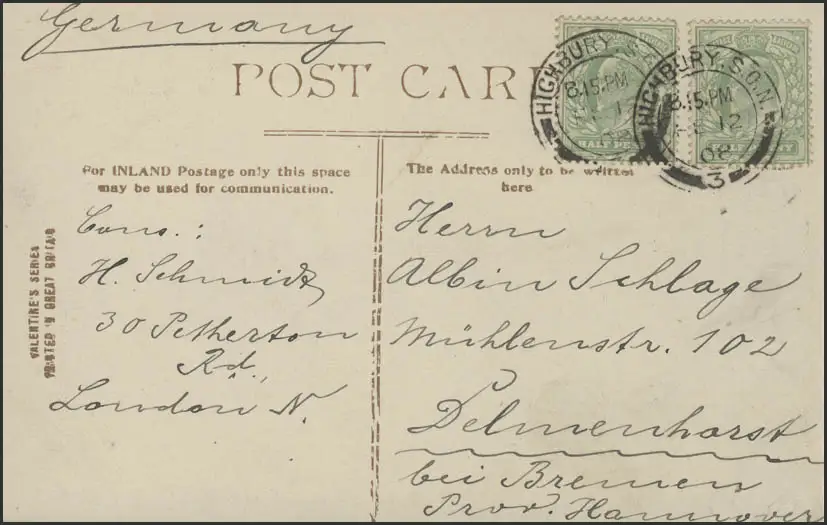 Germany
POST CARD
HIGHBURY. S.O.N.
8.15.PM
12
08
3
HIGHBURY. S.O.N.
8.15.PM
12
HALF PENNY
HALF PENNY
For INLAND Postage only this space
may be used for communication.
The Address only to be written
here
VALENTINE'S SERIES
PRINTED IN GREAT BRITAIN
Cons.:
H. Schmidt
30 Petherton
Rd.,
London N.
Herrn
Albin Schlage
Mühlenstr. 102
Delmenhorst
bei Bremen
Prov. Hannover